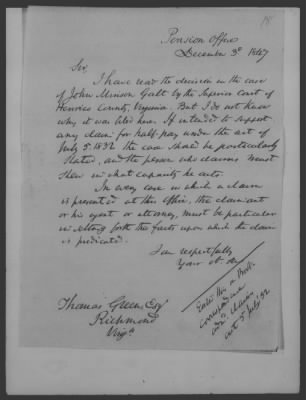 Pension Office
December 3d 1847
Sir,
I have read the decision in the case
of John Minson Galt by the Superior Court of
Henrico County, Virginia. But I do not know
why it was filed here. If intended to support
any claim for half pay under the act of
July 5. 1832 the case should be particularly
stated, and the person who claims must
shew in what capacity he acts.
In every case in which a claim
is presented at this Office, the claimant
or his agent or attorney, must be particular
in setting forth the facts upon which the claim
is predicated.
I am respectfully
Your ob
Thomas Green Esq
Richmond
Virga
in a Book
correspondence
act 5 July 32